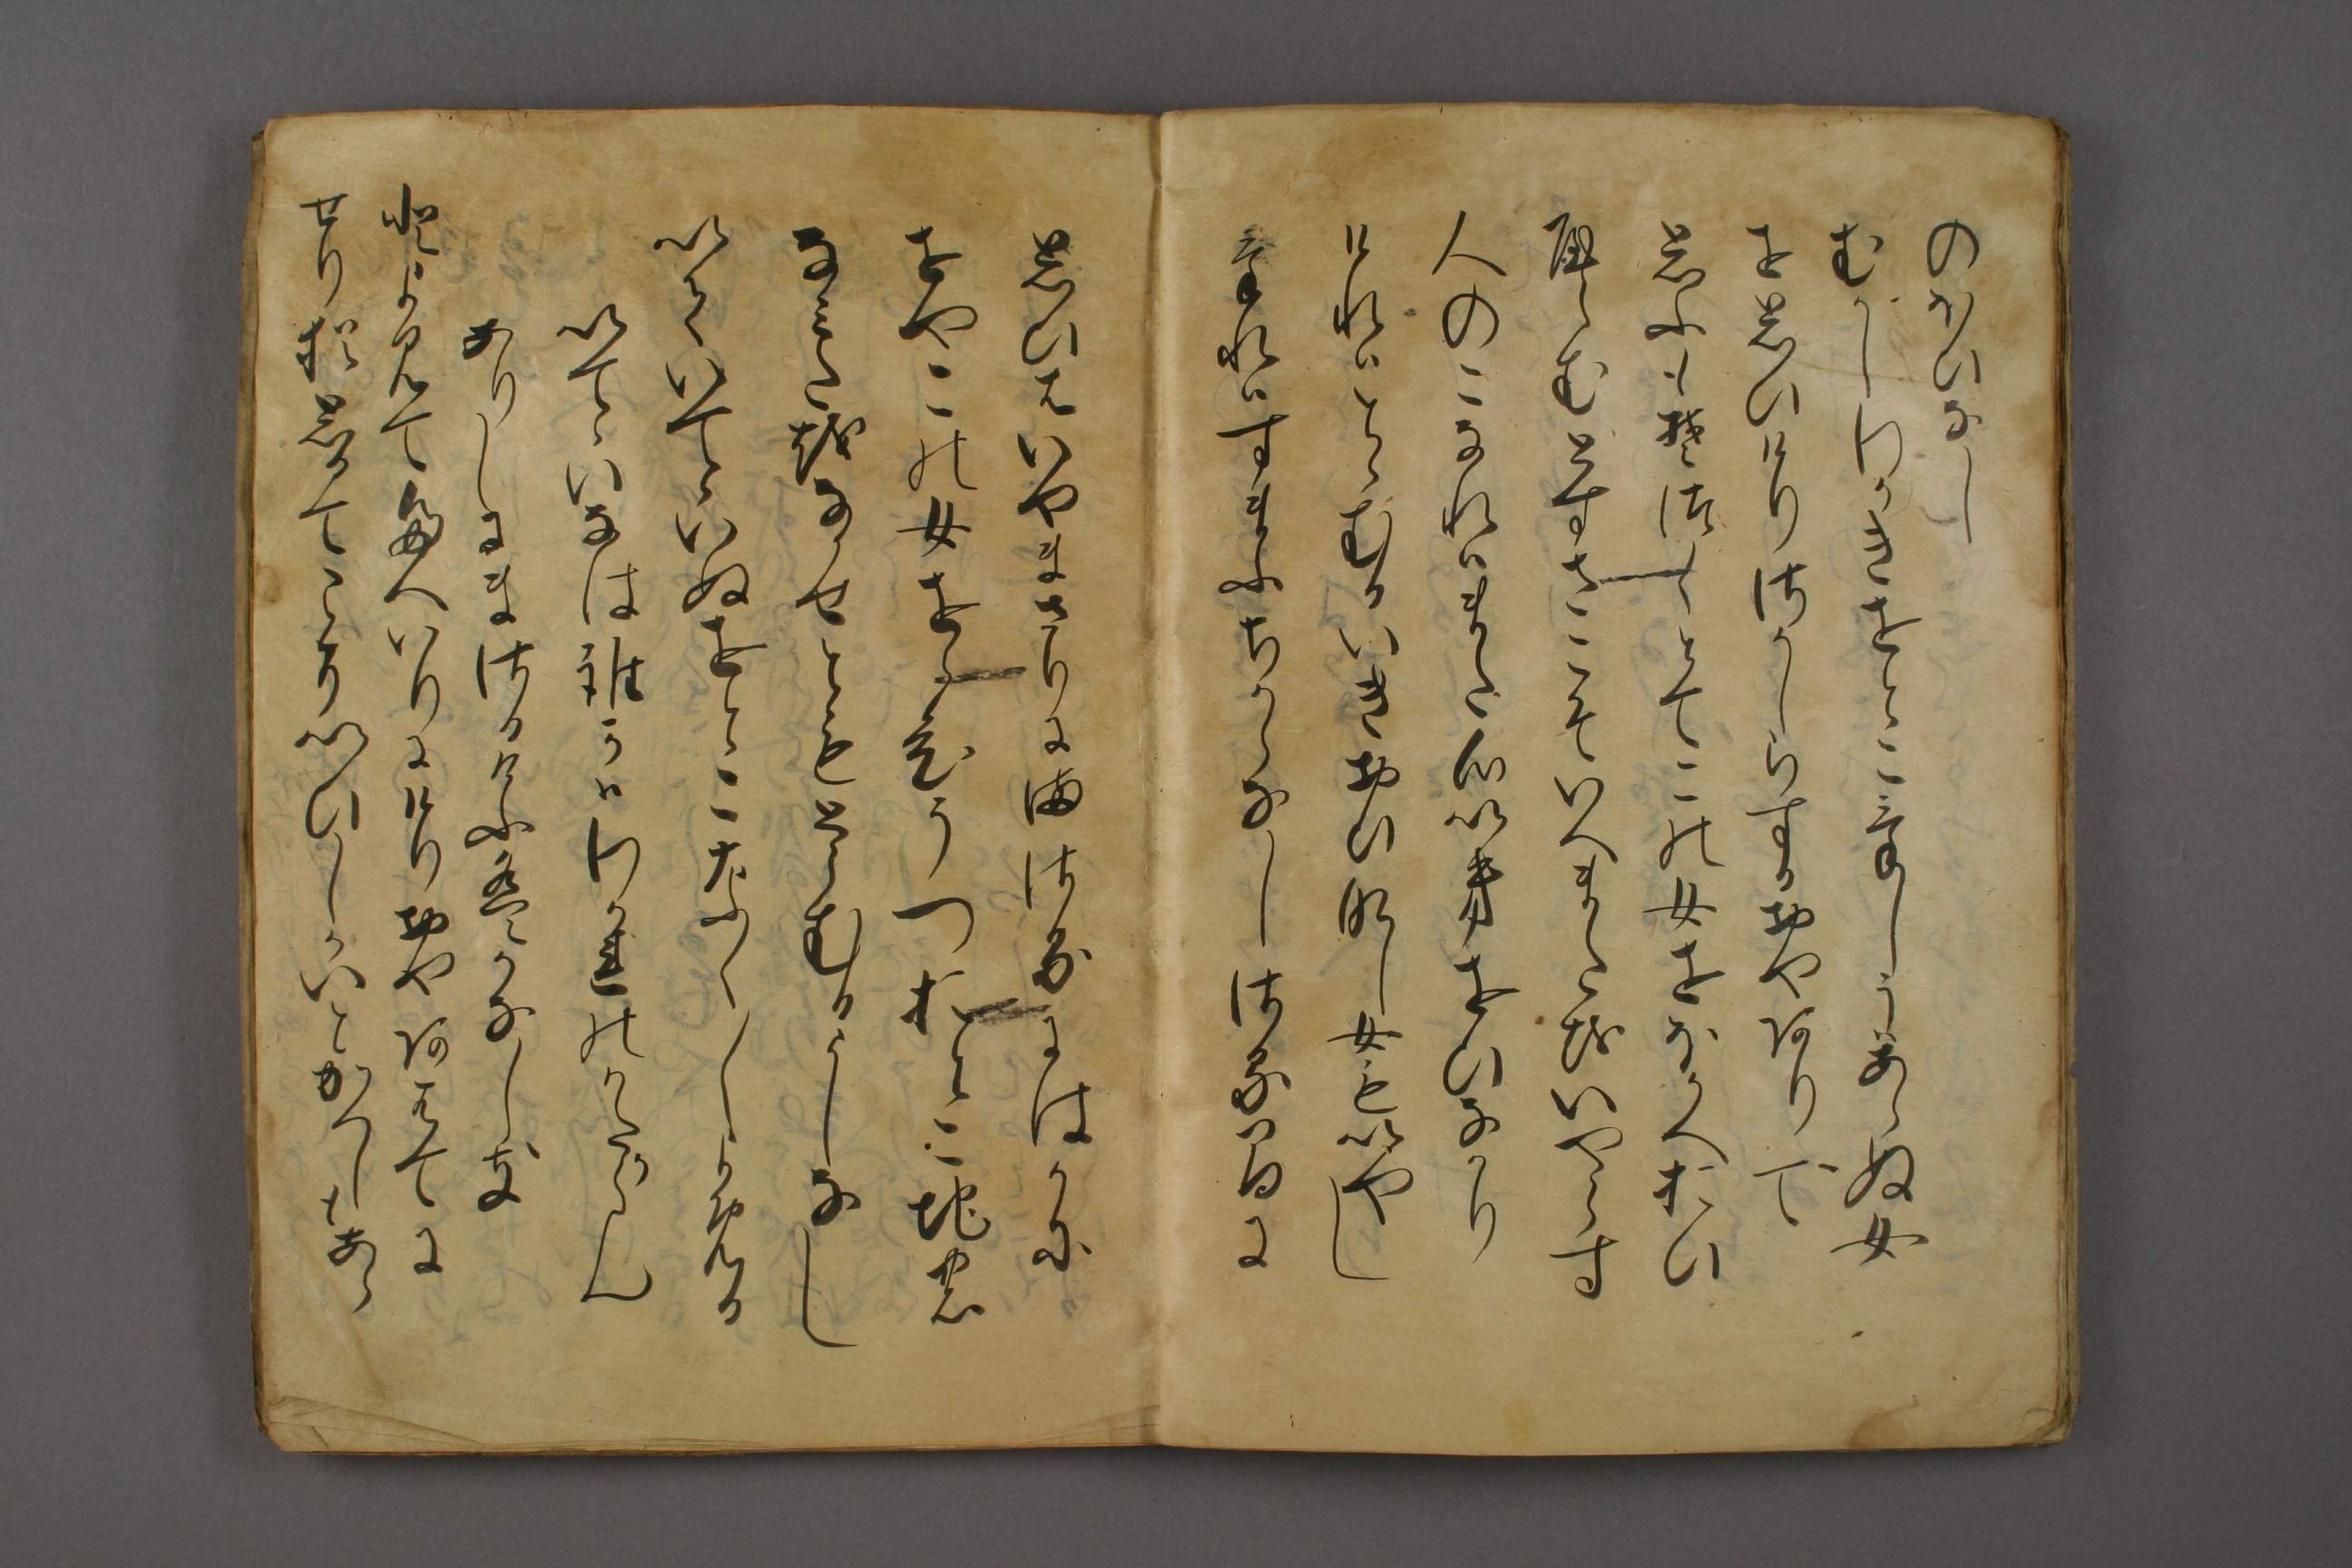 のほいなし
むかしわかきをとこけしうあらぬ女
を思ひけりさかしらするおやありて
思ふもそつくとてこの女をほかへおひ
やらむとすさこそいへまたをいやらす
人のこなれはまた心いきをひなかり
けれはとゝむるいきおひなし女もいやし
けれはすまふちからなしさる間に
思ひはいやまさりにまさるにはかに
をやこの女をゝひうつおとこ地の
なみたをなかせともとゝむるよしなし
いていてゝいぬをとこなく〳〵よめる
いてゝいなは誰かはわかれのかたからん
ありしにまさるけふはかなしな
とよみてたへいりにけりおやあはてに
せり思てこそいひしかいとかくしもあら